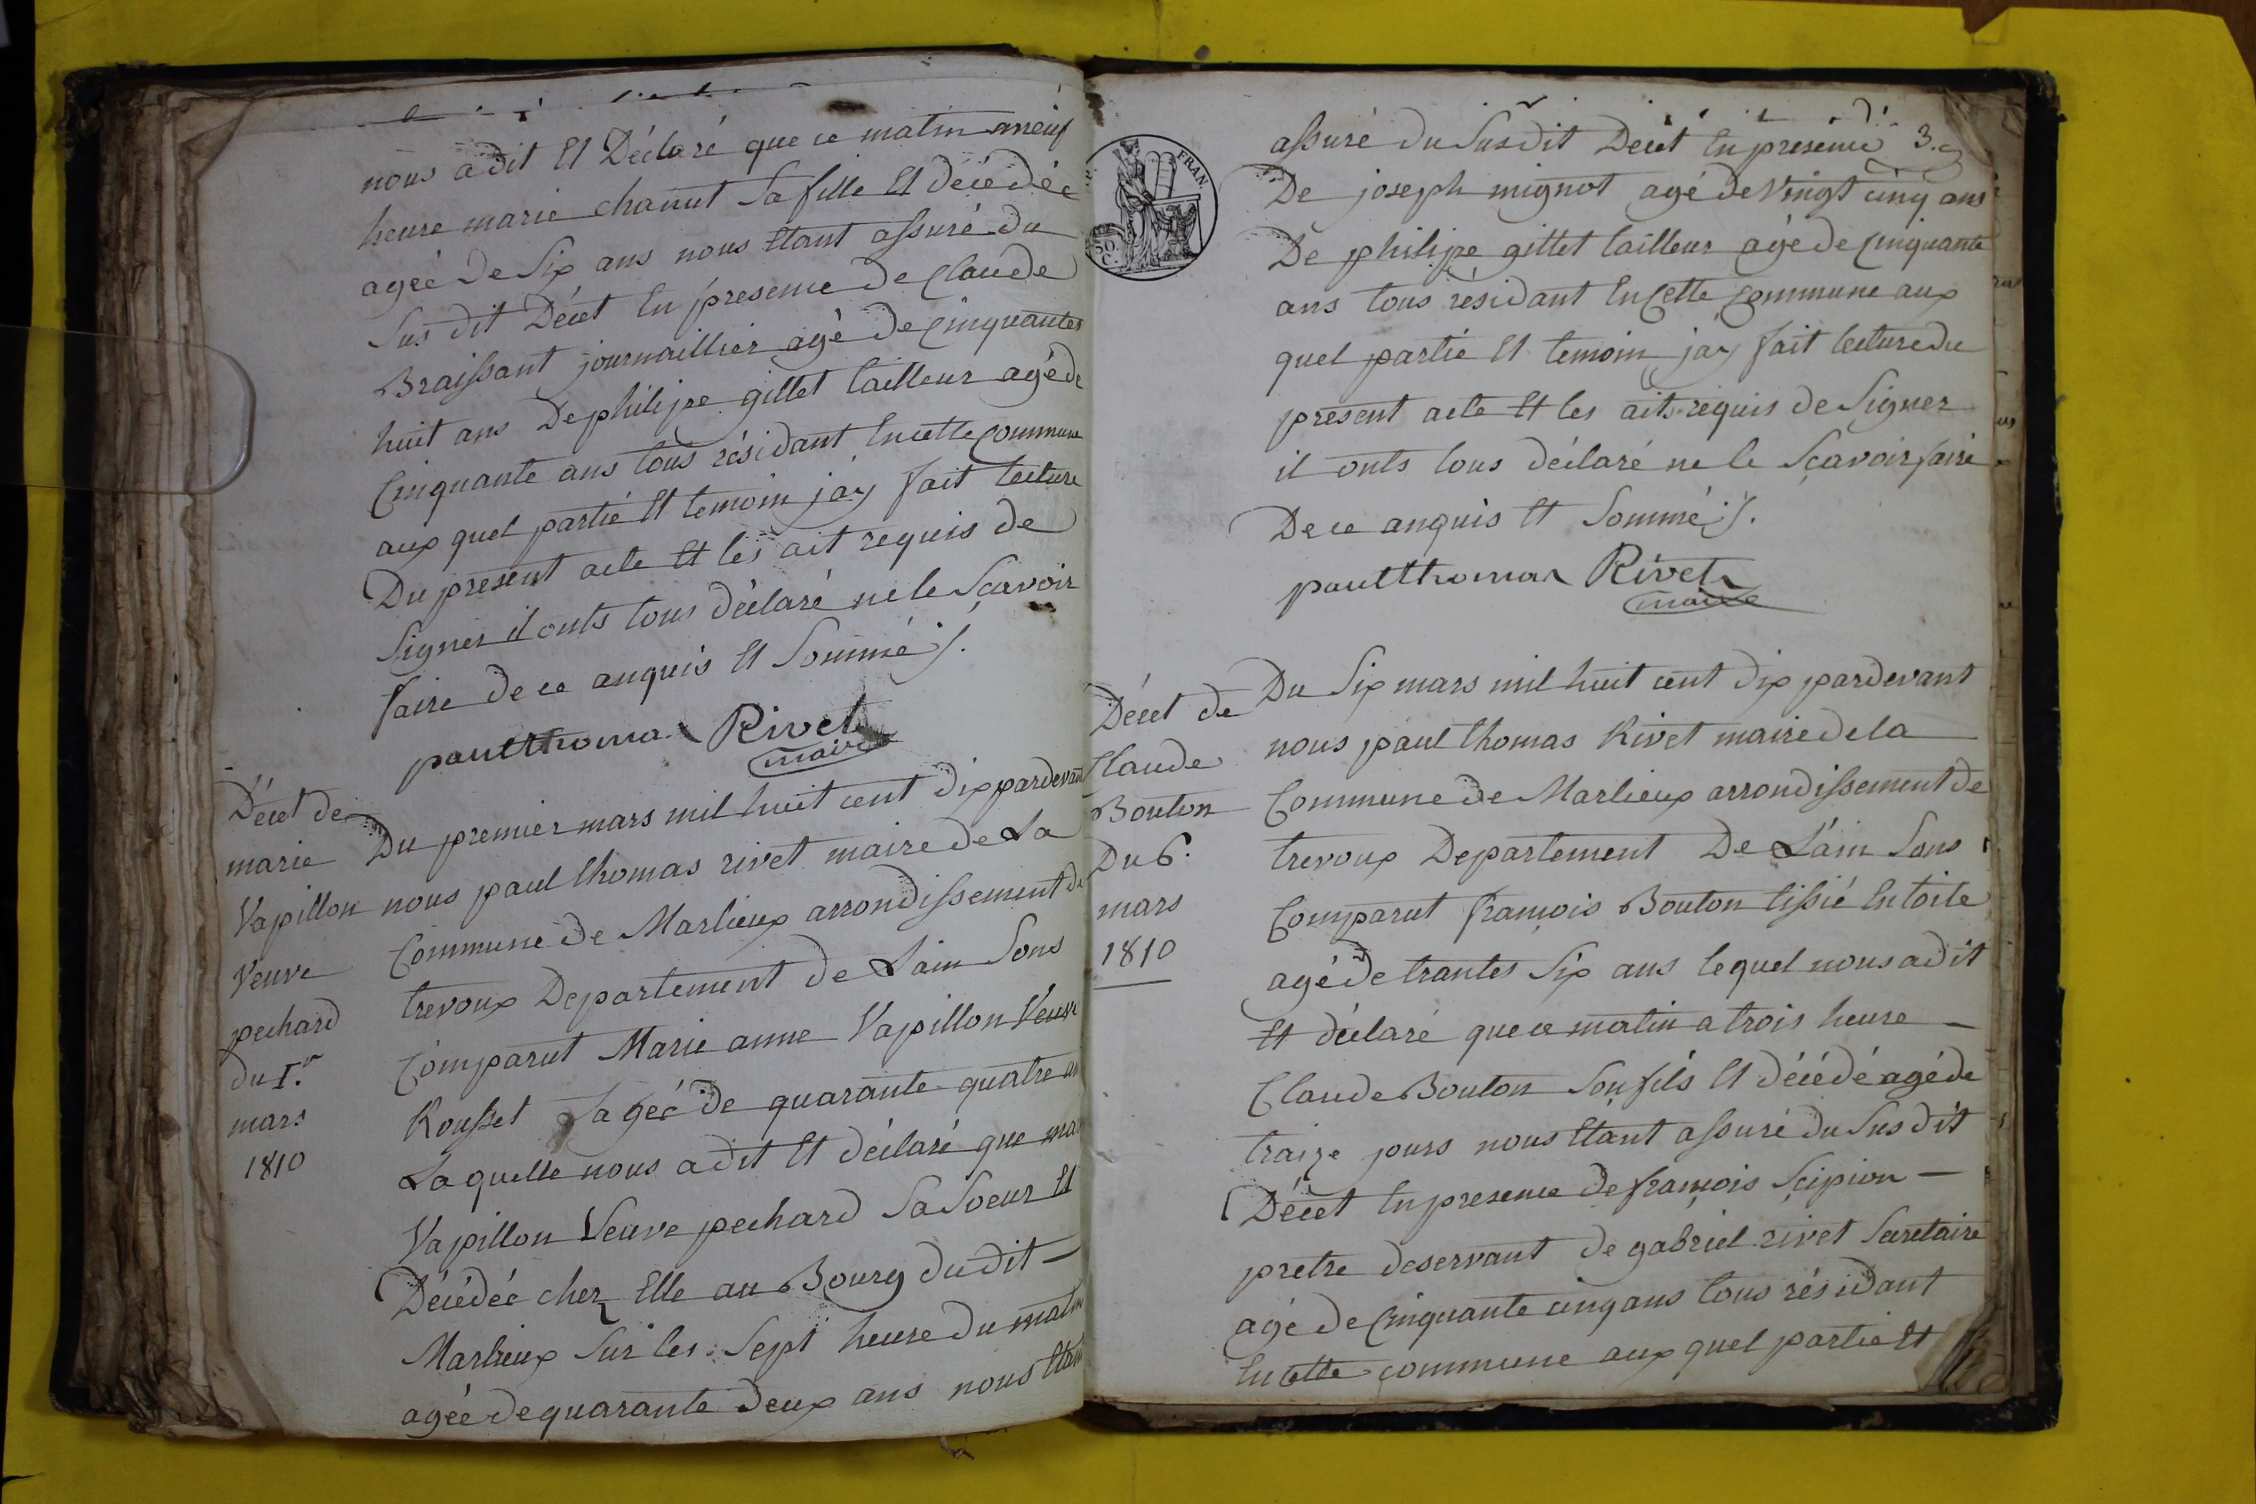 nous a dit Et Déclaré que ce matin a neuf
heure marie chanut Sa fille Et décédée
agée de Six ans nous Etant assuré du
Sus dit Décet En presence de Claude
Braissant journaillier agé de Cinquantes
huit ans De philipe gillet tailleur agé de
Cinquante ans tous résidant En cette Commune
aux quel partié Et temoin jay fait lecture
Du present acte Et les ait requis de
Signer il onts tous déclaré ne le Sçavoir
faire de ce anquis Et Sommé ./.
paul thomas Rivet
maire
Décet de
marie
Vapillon
Veuve
pechard
du 1.er
mars
1810
Du premier mars mil huit cent dix pardevant
nous paul thomas rivet maire de La
Commune de Marlieux arrondissement de
trevoux Departement de Lain Sons
Comparut Marie anne Vapillon Veuve
Rousset agée de quarante quatre an
Laquelle nous a dit Et déclaré que mar
Vapillon Veuve pechard Sa Soeur Et
Décédée chez Elle au Bourg dudit
Marlieux Sur les Sept heure du matin
agée de quarante Deux ans nous Etant
FRAN.
50.
C.
3.
assuré du Susdit Décet En presence
De joseph mignot agé de Vingt cinq ans
De philipe gillet tailleur agé de Cinquante
ans tous résidant En Cette Commune aux
quel partié Et temoin jay fait lecture du
present acte Et les aits requis de Signer
il onts tous déclaré ne le Sçavoir faire
De ce anquis Et Sommé ./.
paul thomas Rivet
maire
Décet de
Claude
Bouton
Du 6.
mars
1810
Du Six mars mil huit cent dix pardevant
nous paul thomas Rivet maire de la
Commune de Marlieux arrondissement de
trevoux Departement De L'ain Sons
Comparut françois Bouton tissié En toile
agé de trantes Six ans lequel nous a dit
Et déclaré que ce matin a trois heure
Claude Bouton Son fils Et décédé agé de
traize jours nous Etant assuré du Sus dit
Décet En presence de françois Scipion
pretre deservant de gabriel rivet Secretaire
agé de Cinquante cinq ans tous résidant
En Cette commune aux quel partie Et